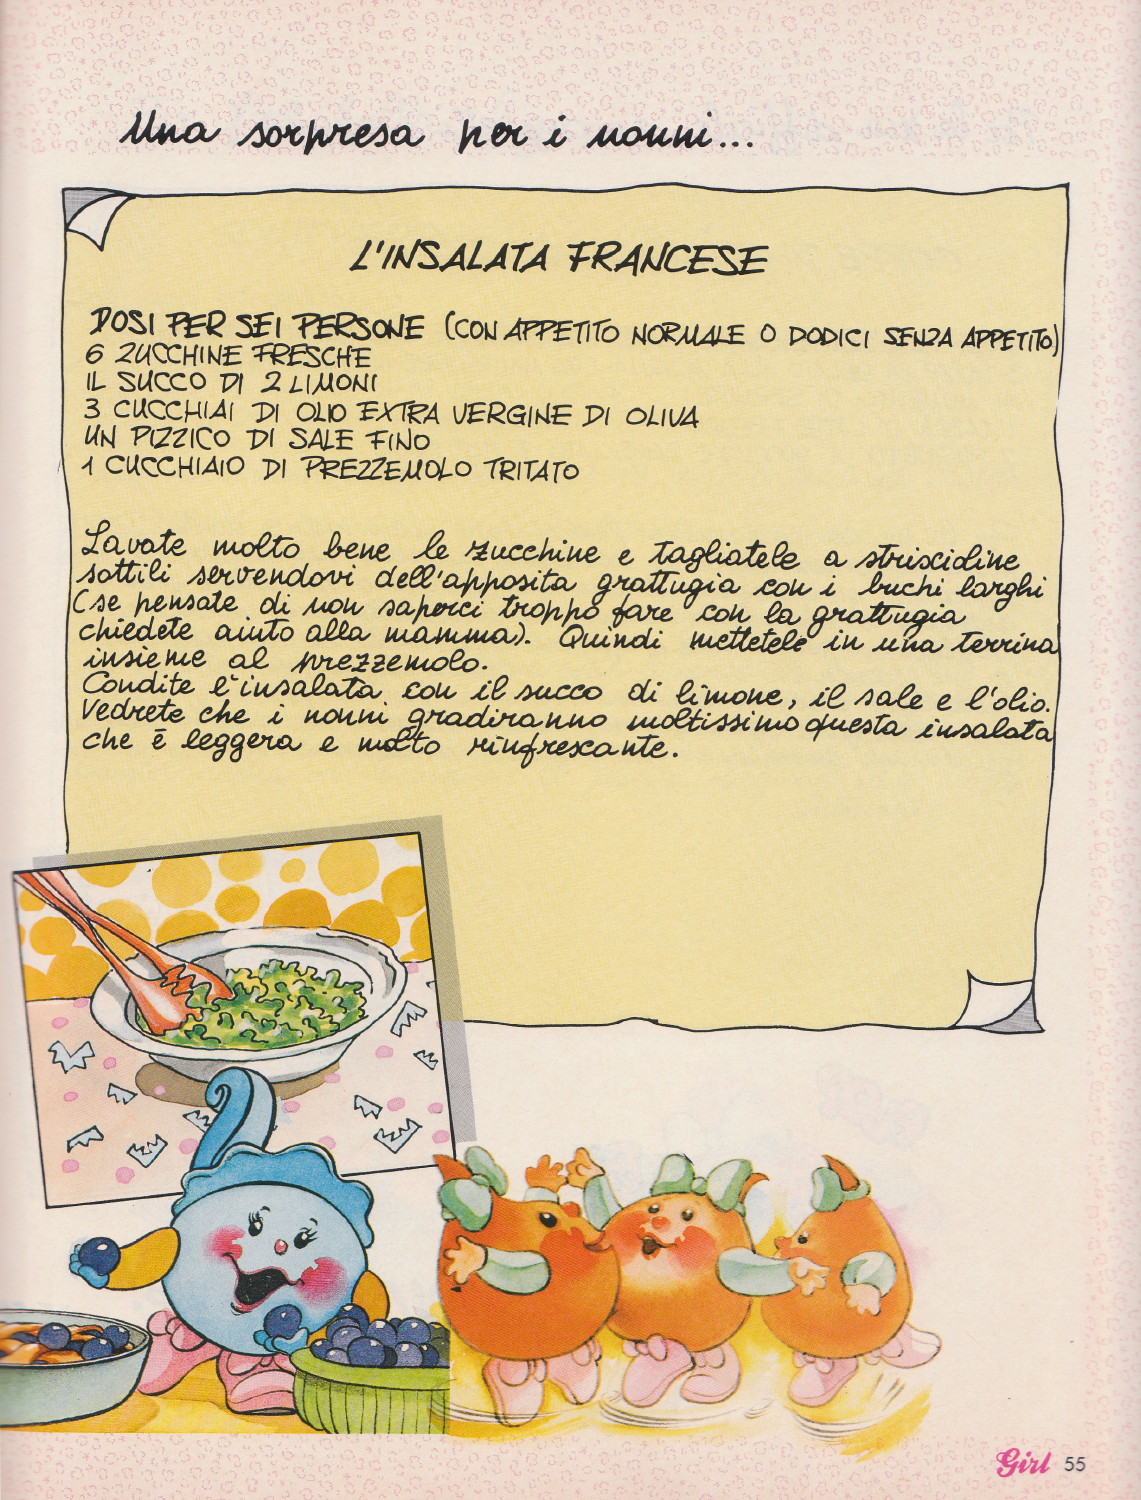 Una sorpresa per i nonni...
L'INSALATA FRANCESE
DOSI PER SEI PERSONE (CON APPETITO NORMALE O DODICI SENZA APPETITO)
6 ZUCCHINE FRESCHE
IL SUCCO DI 2 LIMONI
3 CUCCHIAI DI OLIO EXTRA VERGINE DI OLIVA
UN PIZZICO DI SALE FINO
1 CUCCHIAIO DI PREZZEMOLO TRITATO
Lavate molto bene le zucchine e tagliatele a striscioline
sottili servendovi dell'apposita grattugia con i buchi larghi
(se pensate di non saperci troppo fare con la grattugia
chiedete aiuto alla mamma). Quindi mettetele in una terrina
insieme al prezzemolo.
Condite l'insalata con il succo di limone, il sale e l'olio.
Vedrete che i nonni gradiranno moltissimo questa insalata
che è leggera e molto rinfrescante.
Girl 55